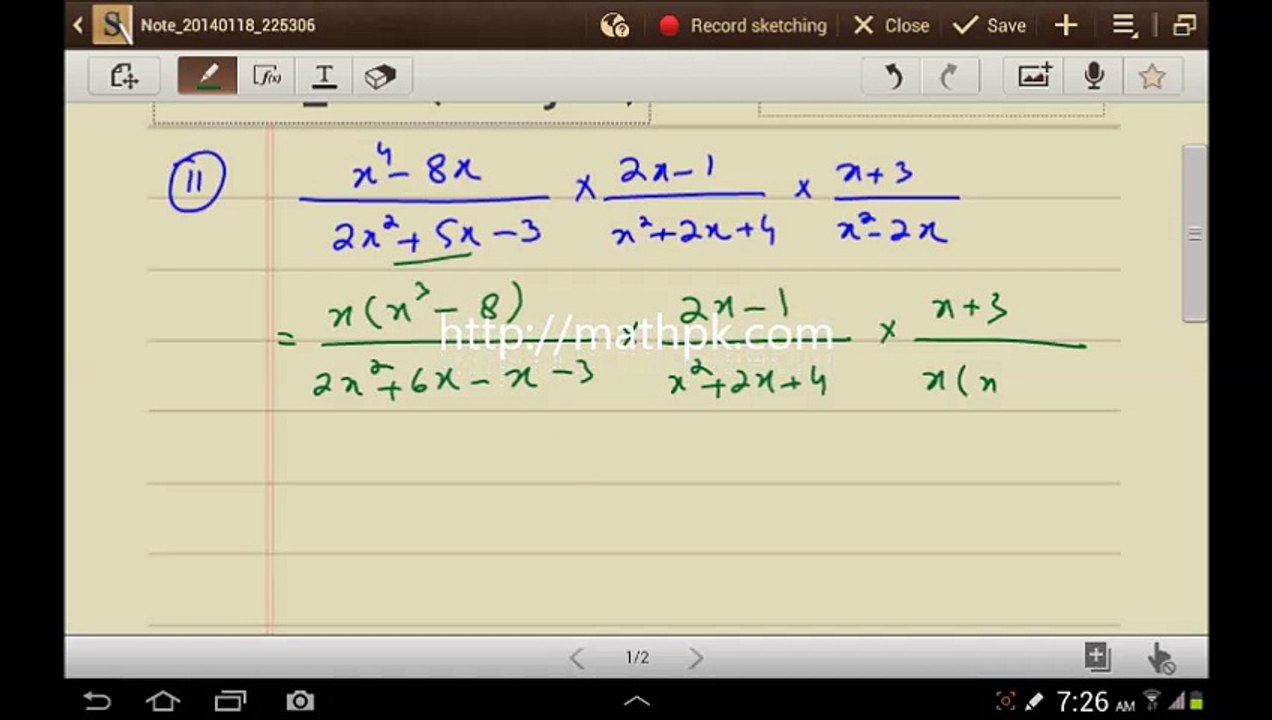 Note_20140118_225306 Record sketching Close Save
f(x) T
11 x⁴ - 8x / 2x² + 5x - 3 × 2x - 1 / x² + 2x + 4 × x + 3 / x² - 2x
= x(x³ - 8) / 2x² + 6x - x - 3 × 2x - 1 / x² + 2x + 4 × x + 3 / x(x
http://mathpk.com
1/2
7:26 AM